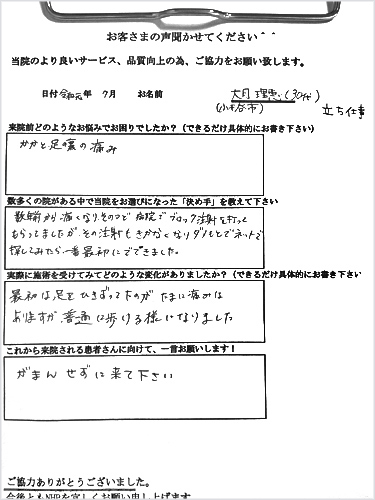 お客さまの声聞かせてください＾＾
当院のより良いサービス、品質向上の為、ご協力をお願い致します。
日付 令和元年 7月 お名前 大月 理恵 (30代)
(小千谷市) 立ち仕事
来院前どのようなお悩みでお困りでしたか？（できるだけ具体的にお書き下さい）
かかと足の裏の痛み
数多くの院がある中で当院をお選びになった「決め手」を教えて下さい
数年前から痛くなり、そのつど病院でブロック注射を打って
もらってましたが、その注射もきかなくなりダメもとでネットで
探してみたら一番最初にでてきました。
実際に施術を受けてみてどのような変化がありましたか？（できるだけ具体的にお書き下さい
最初は足をひきずってたのが たまに痛みは
ありますが 普通に歩ける様になりました
これから来院される患者さんに向けて、一言お願いします！
がまん せずに来て下さい
ご協力ありがとうございました。
今後ともNHPを宜しくお願い申し上げます